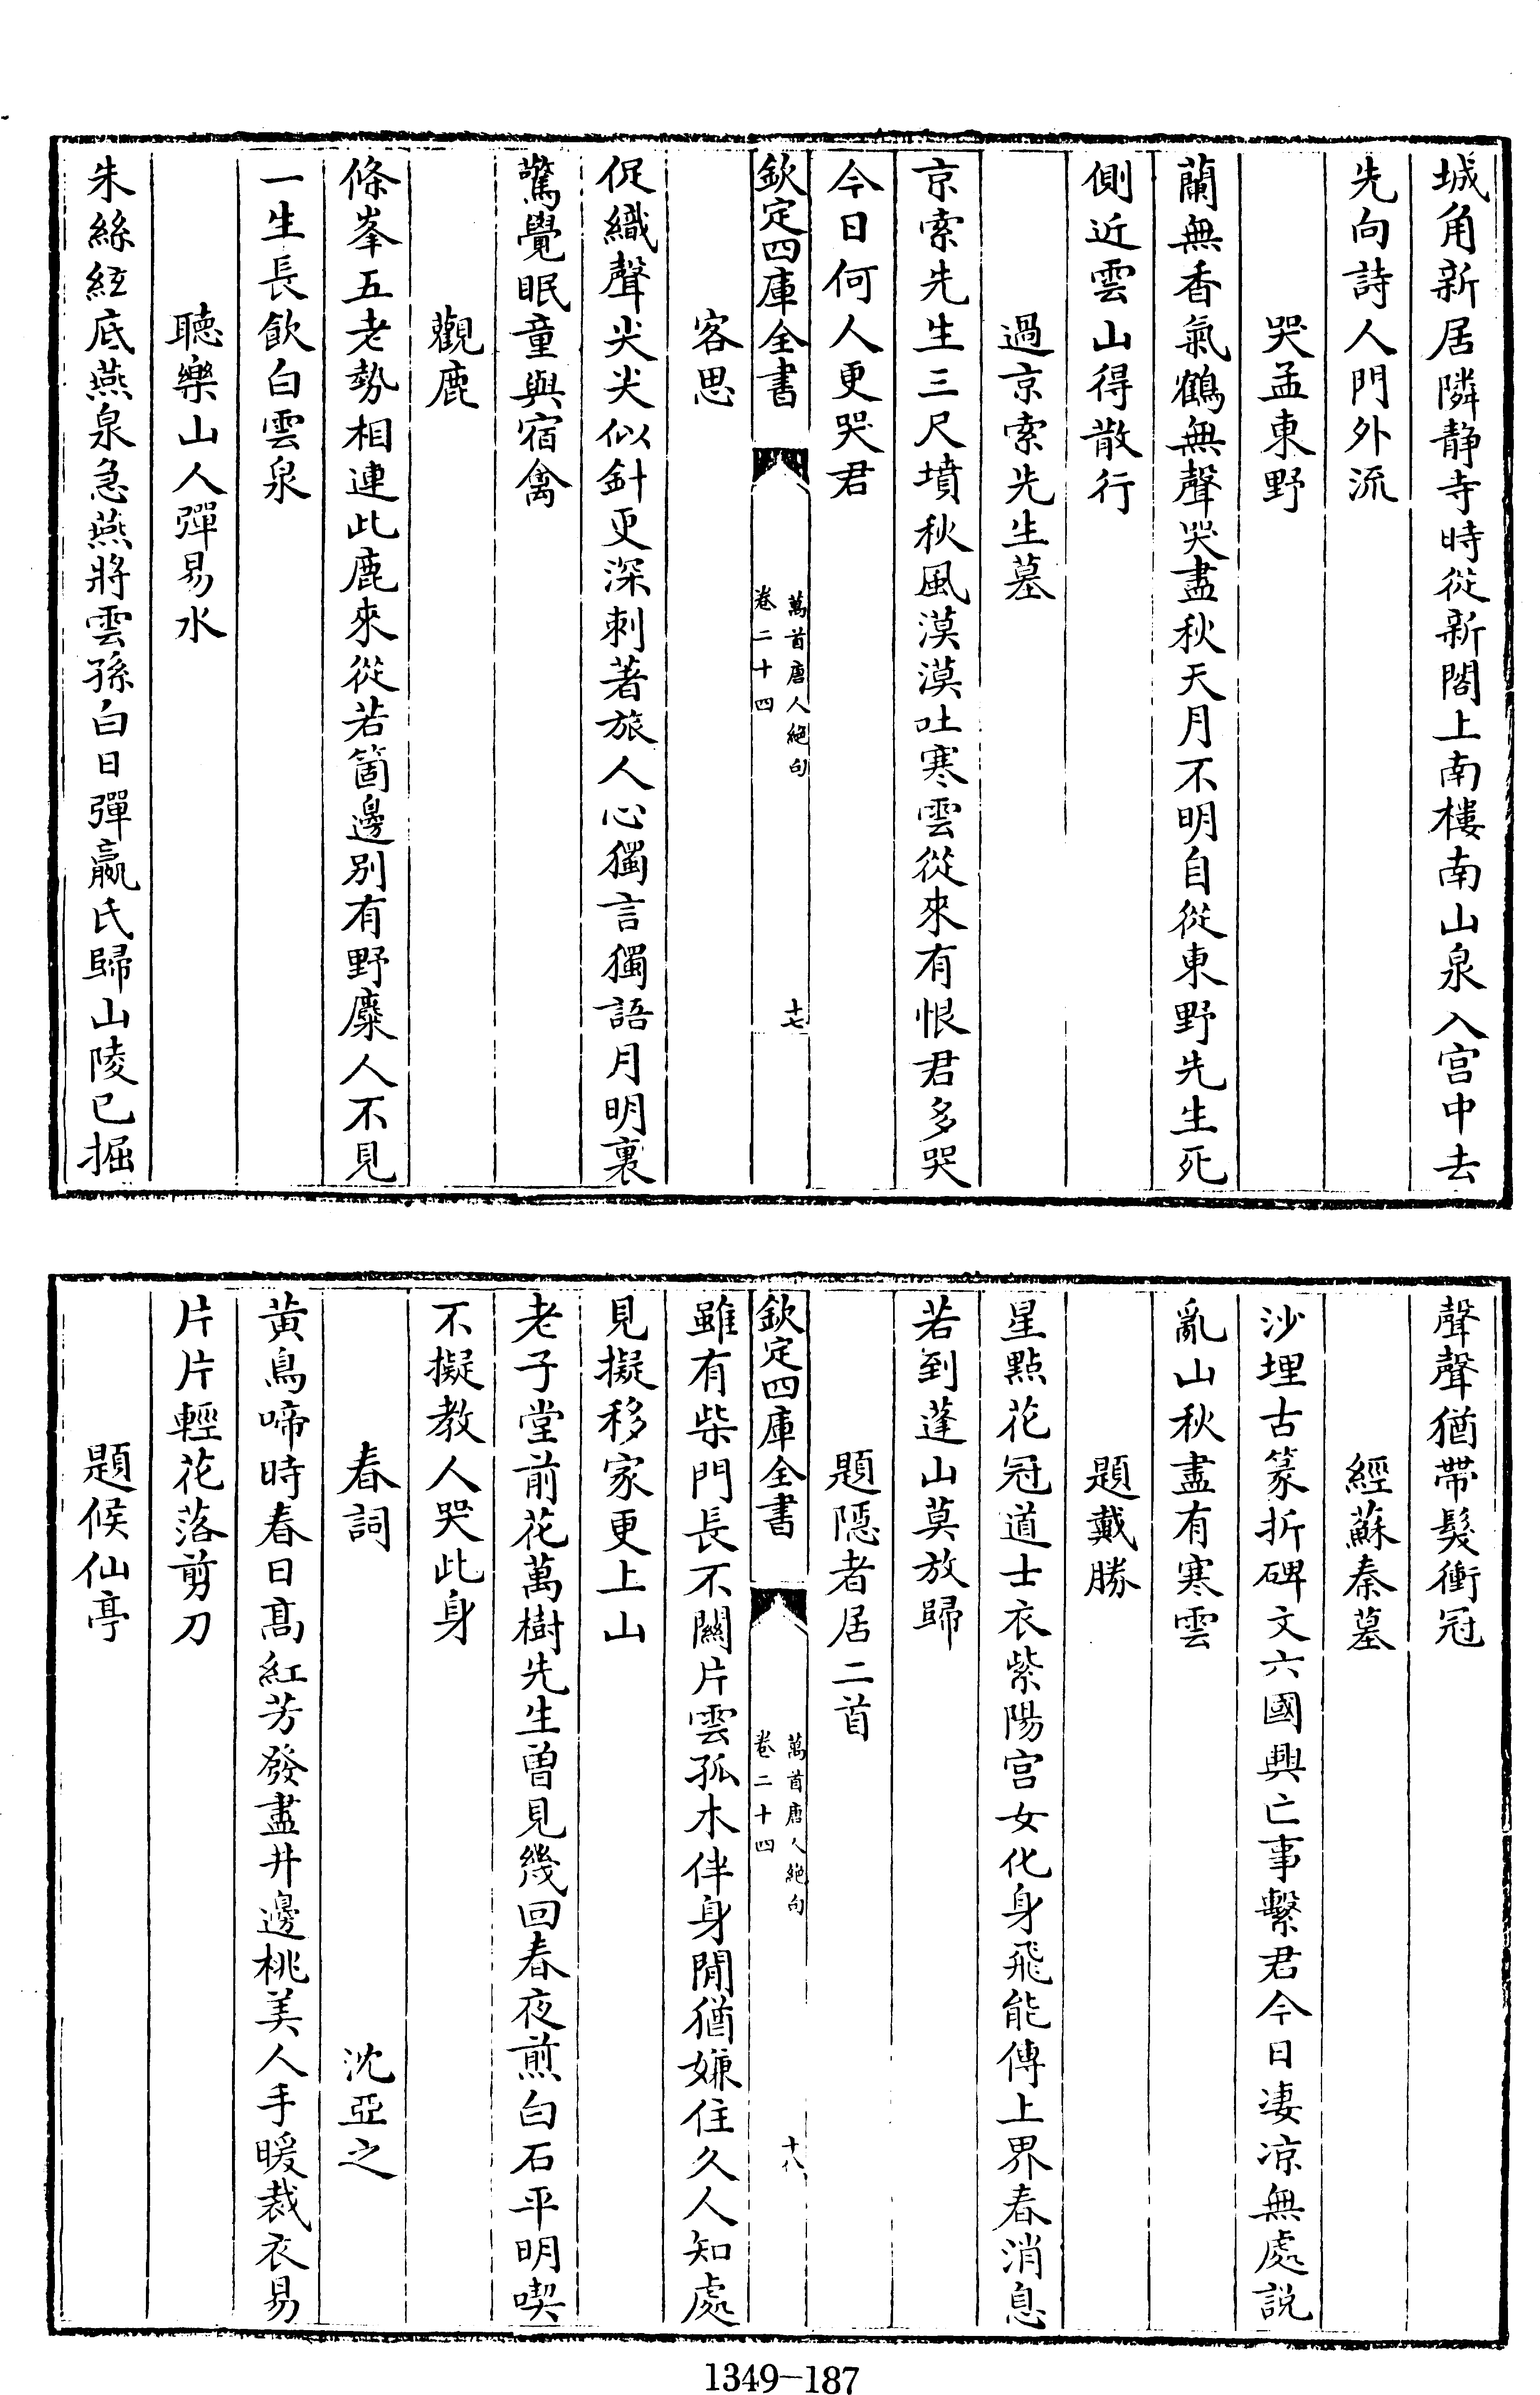 城角新居隣静寺時從新閣上南樓南山泉入宫中去
先向詩人門外流
哭孟東野
蘭無香氣鶴無聲哭盡秋天月不明自從東野先生死
側近雲山得散行
過京索先生墓
京索先生三尺墳秋風漠漠吐寒雲從來有恨君多哭
今日何人更哭君
欽定四庫全書
萬首唐人絶句
卷二十四
十七
客思
促織聲尖尖似針更深刺著旅人心獨言獨語月明裏
驚覺眠童與宿禽
觀鹿
條峯五老勢相連此鹿來從若箇邊别有野麋人不見
一生長飲白雲泉
聽樂山人彈易水
朱絲絃底燕泉急燕將雲孫白日彈嬴氏歸山陵已掘
聲聲猶帶髮衝冠
經蘇秦墓
沙埋古篆折碑文六國興亡事繫君今日凄凉無處説
亂山秋盡有寒雲
題戴勝
星點花冠道士衣紫陽宫女化身飛能傳上界春消息
若到蓬山莫放歸
題隱者居二首
欽定四庫全書
萬首唐人絶句
卷二十四
十八
雖有柴門長不關片雲孤木伴身閒猶嫌住久人知處
見擬移家更上山
老子堂前花萬樹先生曾見幾回春夜煎白石平明喫
不擬教人哭此身
春詞 沈亞之
黄鳥啼時春日髙紅芳發盡井邊桃美人手暖裁衣易
片片輕花落剪刀
題候仙亭
1349-187